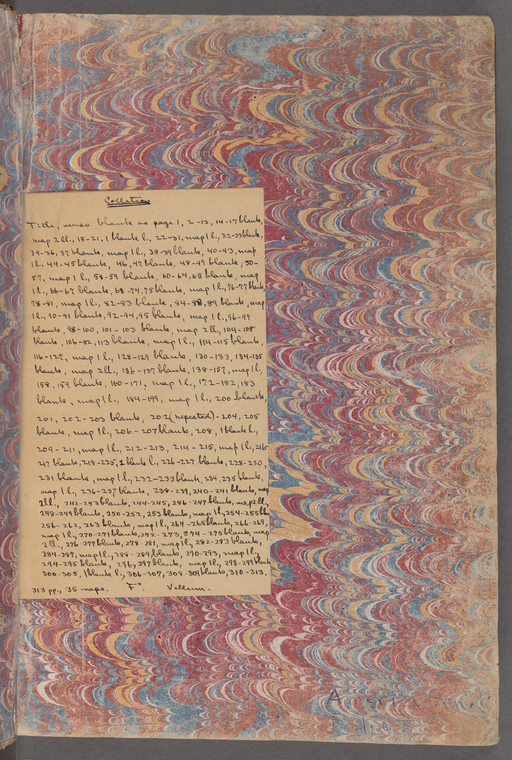 Collation
Title, verso blank as page 1, 2-13, 14-17 blank,
map 2 ll., 18-21, 1 blank l., 22-31, map 1 l., 32-33 blank,
34-36, 37 blank, map 1 l., 38-39 blank, 40-43, map
1 l., 44-45 blank, 46, 47 blank, 48-49 blank, 50-
57, map 1 l., 58-59 blank, 60-64, 65 blank, map
1 l., 66-67 blank, 68-74, 75 blank, map 1 l., 76-77 blank,
78-81, map 1 l., 82-83 blank, 84-88, 89 blank, map
1 l., 90-91 blank, 92-94, 95 blank, map 1 l., 96-97
blank, 98-100, 101-103 blank, map 2 ll., 104-105
blank, 106-112, 113 blank, map 1 l., 114-115 blank,
116-127, map 1 l., 128-129 blank, 130-133, 134-135
blank, map 2 ll., 136-137 blank, 138-157, map 1 l.,
158, 159 blank, 160-171, map 1 l., 172-182, 183
blank, map 1 l., 184-199, map 1 l., 200 blank,
201, 202-203 blank, 202 (repeated)-204, 205
blank, map 1 l., 206-207 blank, 208, 1 blank l.,
209-211, map 1 l., 212-213, 214-215, map 1 l., 216-
217 blank, 218-225, 1 blank l., 226-227 blank, 228-230,
231 blank, map 1 l., 232-233 blank, 234, 235 blank,
map 1 l., 236-237 blank, 238-239, 240-241 blank, map
2 ll., 242-243 blank, 244-245, 246-247 blank, map 2 ll.,
248-249 blank, 250-252, 253 blank, map 1 l., 254-255 bl
256-262, 263 blank, map 1 l., 264-265 blank, 266-269,
map 1 l., 270-271 blank, 272-273, 274-275 blank, map
2 ll., 276-277 blank, 278-281, map 1 l., 282-283 blank,
284-287, map 1 l., 288-289 blank, 290-293, map 1 l.,
294-295 blank, 296, 297 blank, map 1 l., 298-299 blank
300-305, 1 blank l., 306-307, 308-309 blank, 310-313.
313 pp., 35 maps. F°. Vellum.